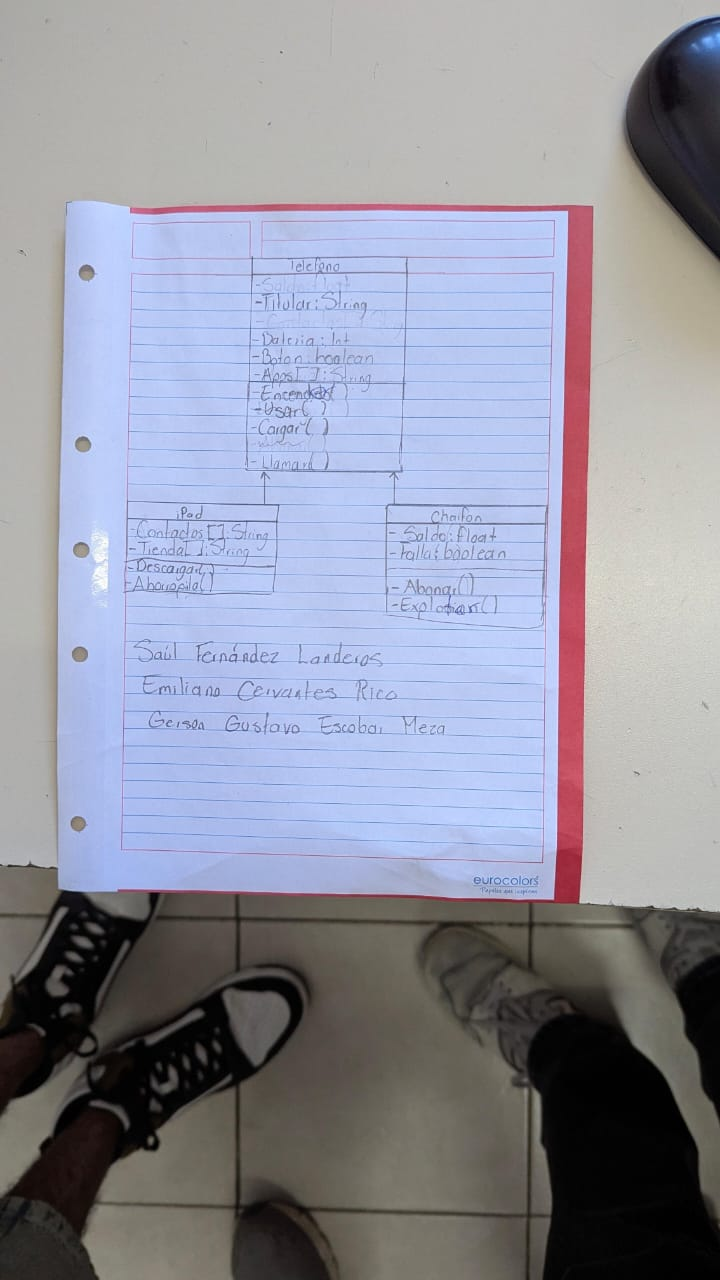 Telefono
-Saldo:float
-Titular:String
-Bateria:Int
-Boton:boolean
-Apps[ ]:String
-Encender( )
-Usar( )
-Cargar( )
-Llamar( )
iPad
-Contactos[ ]:String
-Tienda[ ]:String
-Descargar( )
-Ahorropila( )
Chaifon
- Saldo:float
-Falla:boolean
-Abonar( )
-Explotar( )
Saúl Fernández Landeros
Emiliano Cervantes Rico
Gerson Gustavo Escobar Meza
eurocolors
Papeles que inspiran